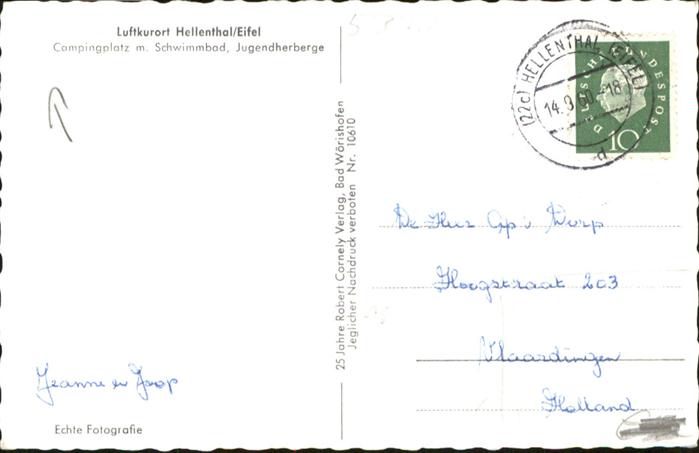 Luftkurort Hellenthal/Eifel
Campingplatz m. Schwimmbad, Jugendherberge
Jeanne en Joop
Echte Fotografie
25 Jahre Robert Cornely Verlag, Bad Wörishofen
Jeglicher Nachdruck verboten Nr. 10610
(22c) HELLENTHAL (EIFEL)
14.9.60-18
d
DEUTSCHE BUNDESPOST
10
De Heer Op 't Dorp
Hoogstraat 203
Vlaardingen
Holland